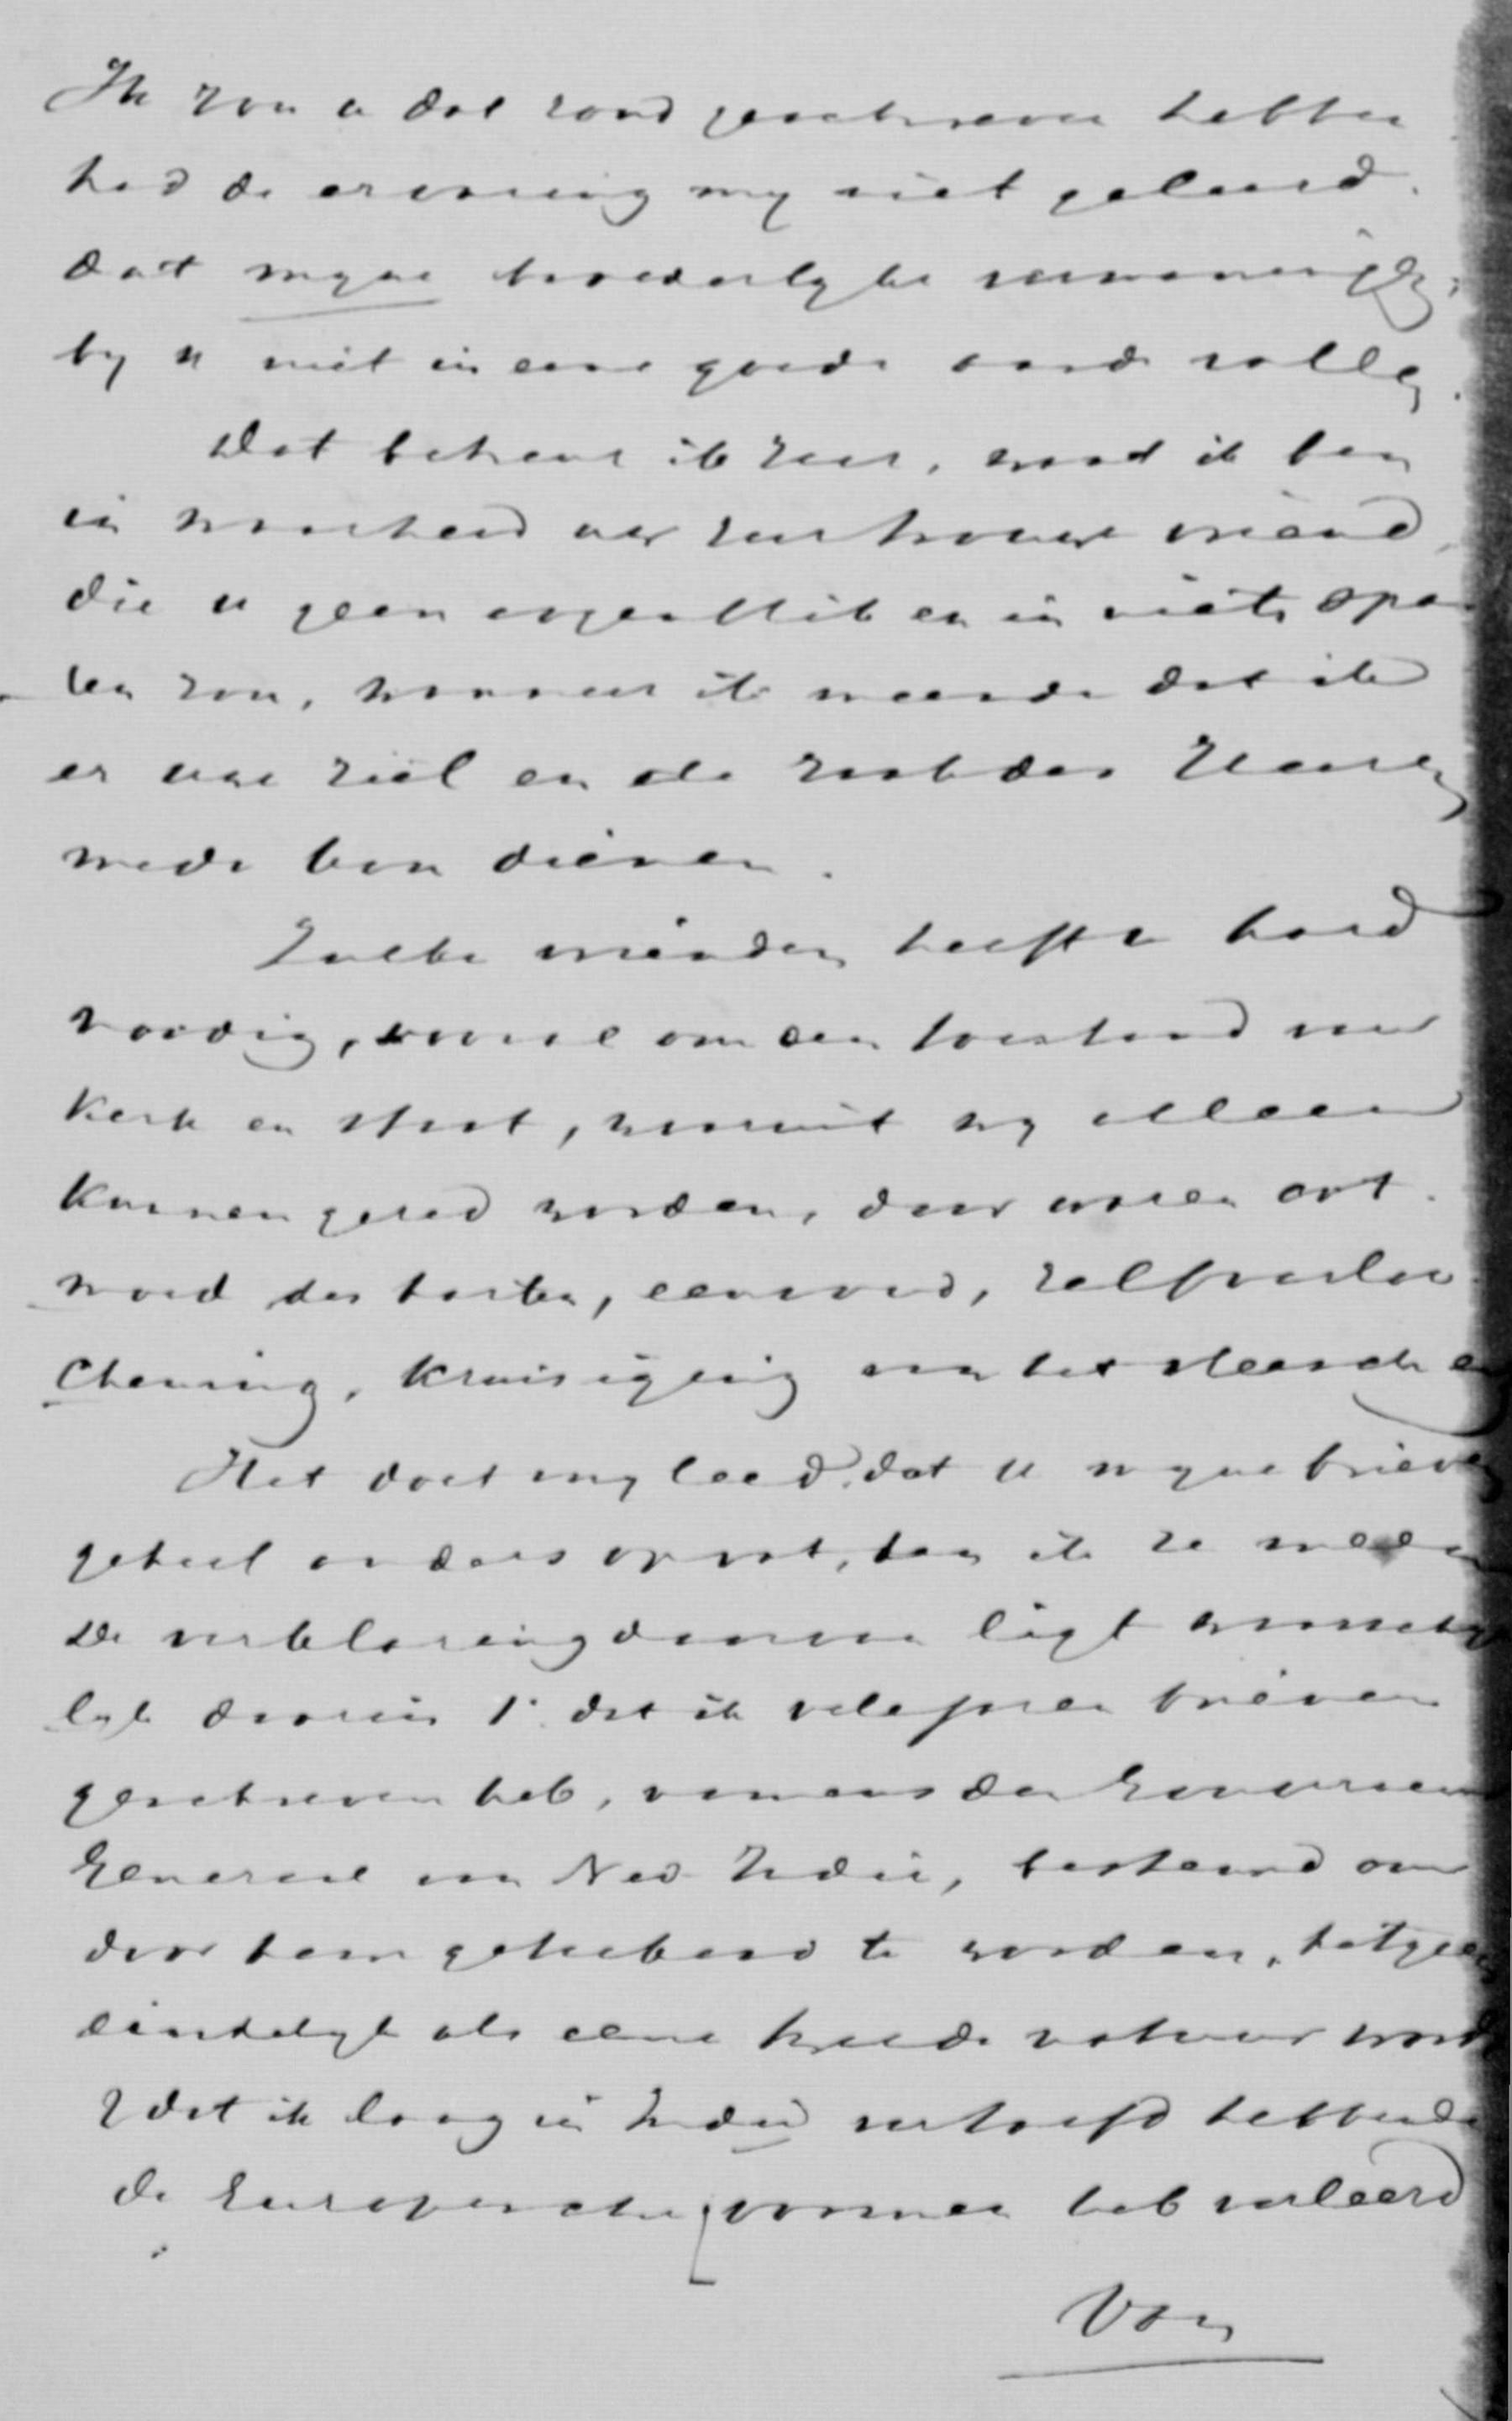 Ik zou u dat rond geschreven hebben
had de ervaring my niet geleerd.
dat myne broederlyke vermaningen
by u niet in eene goede aarde vallen.
Dat betreur ik zeer, want ik ben
in waarheid uw zeer trouwe vriend,
die u geen oogenblik en in niets spa-
ren zou, wanneer ik meende dat ik
er uwe ziel en de zaak des Heeren
mede kon dienen.
Zulke vrienden heeft u hard
noodig, vooral om den toestand van
Kerk en Staat, waaruit wy alleen
kunnen gered worden, door waren oot-
moed des harten, eenvoud, zelfverloo-
chening, kruisiging van het vleesch en
Het doet my leed, dat u myne brieven
geheel anders opvat, dan ik ze meen
De verklaring daarvan ligt
lyk daarin 1° dat ik vele jaren brieven
geschreven heb, namens den Gouverneur
Generaal van Ned. Indië, bestemd om
door hem geteekend te worden, hetgeen
eindelyk als eene tweede natuur wordt
2 dat ik lang in Indië vertoefd hebbende
de Europesche vormen heb verleerd
Van